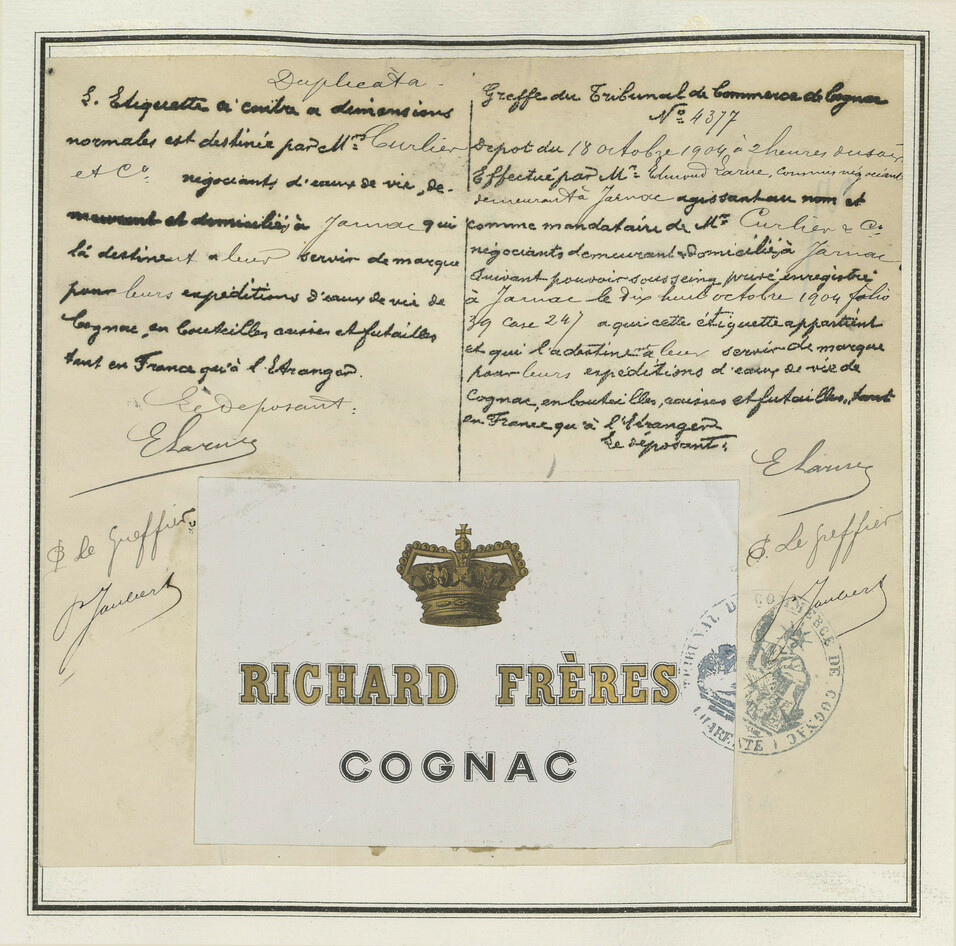 Duplicata.
L. Etiquette ci contre a dimensions
normales est destinée par Mrs Curlier
et Co.
négociants d'eaux de vie, de-
meurant et domiciliés à Jarnac qui
la destinent a leur servir de marque
pour leurs expéditions d'eaux de vie de
Cognac, en bouteilles caisses et futailles
tant en France qu'à l'Etranger.
Le deposant:
E Larue
P. Le Greffier
P Jaubert
Greffe du Tribunal de Commerce de Cognac
No 4377
Depot du 18 octobre 1904 à 2 heures du soir
Effectué par Mr Edmond Larue, commis négociant
demeurant à Jarnac agissant au nom et
comme mandataire de Mrs Curlier & Co.
négociants demeurant & domiciliés à Jarnac
suivant pouvoir sous seing privé enregistré
à Jarnac le dix huit octobre 1904 folio
39 case 247 a qui cette étiquette appartient
et qui l'a destinent à leur servir de marque
pour leurs expéditions d'eaux de vie de
Cognac, en bouteilles, caisses et futailles, tant
en France qu'à l'Etranger
Le déposant:
E Larue
P. Le Greffier
P Jaubert
RICHARD FRÈRES
COGNAC
TRIBUNAL DE COMMERCE DE COGNAC (CHARENTE)